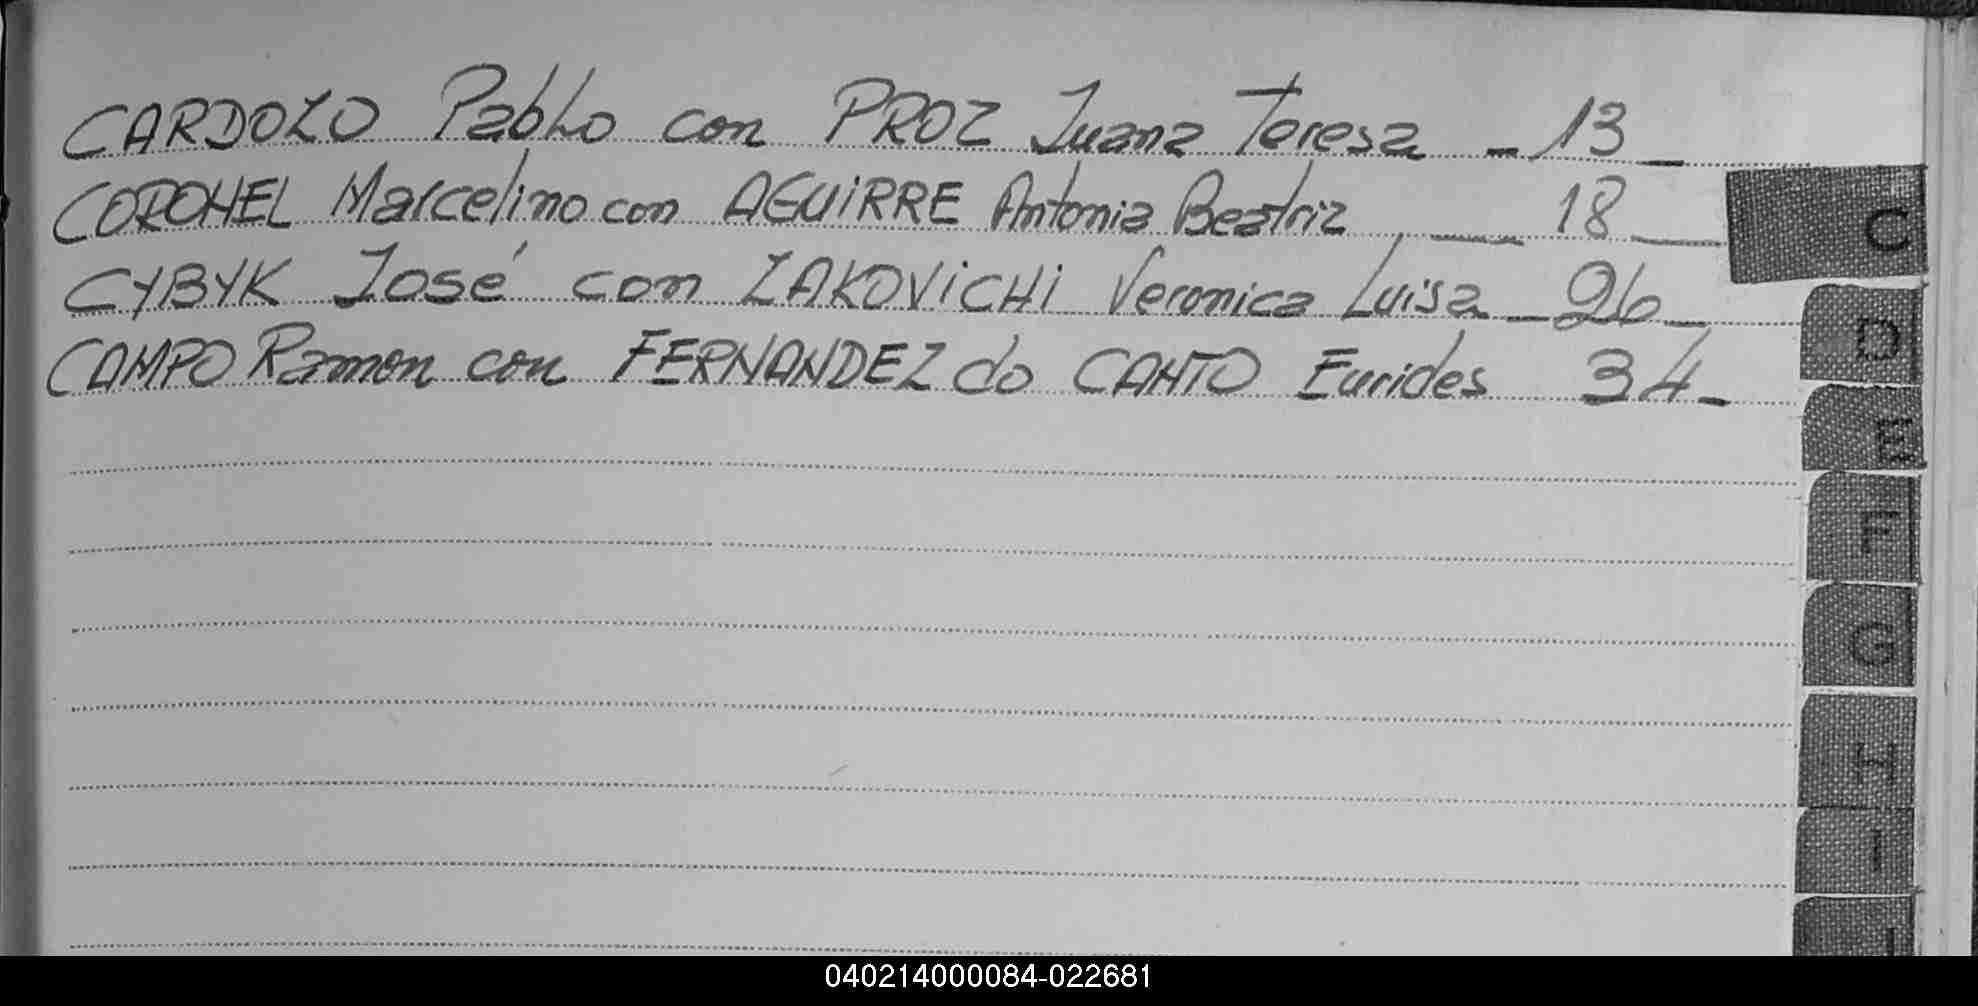 CARDOZO Pablo con PROZ Juana Teresa _ 13 _
CORONEL Marcelino con AGUIRRE Antonia Beatriz , __ 18 __
CYBYK José con ZAKOVICHI Veronica Luisa _ 26 _
CAMPO Ramon con FERNANDEZ do CANTO Eurides 34 _
C
D
E
F
G
H
I
J
040214000084-022681